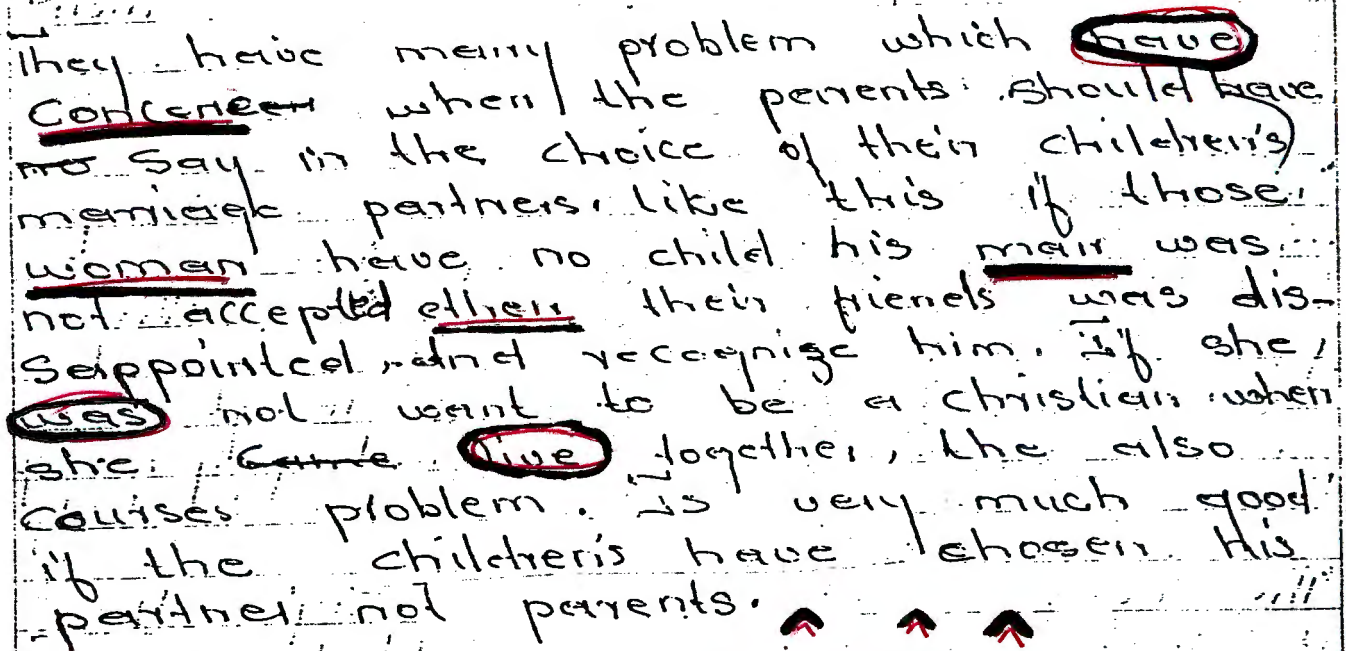 They have many problem which have
Concene when the parents should have
no say in the choice of their children's
marriage partners. like this if those
woman have no child his man was
not accepted ethen their friends was dis-
sappointed and recognize him. If she,
was not want to be a christian when
she came live together, the also
courses problem. Is very much good
if the children's have chosen his
partner not parents.